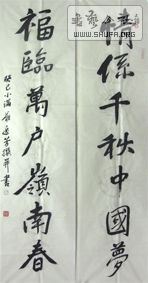 情系千秋中國夢
福臨萬户嶺南春
癸巳小滿
書
WWW.SHUFA.ORG